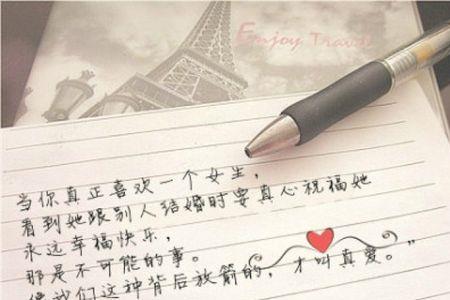 Enjoy Travel
当你真正喜欢一个女生，
看到她跟别人结婚时要真心祝福她
永远幸福快乐，
那是不可能的事。
像我们这种背后放箭的，才叫真爱。”